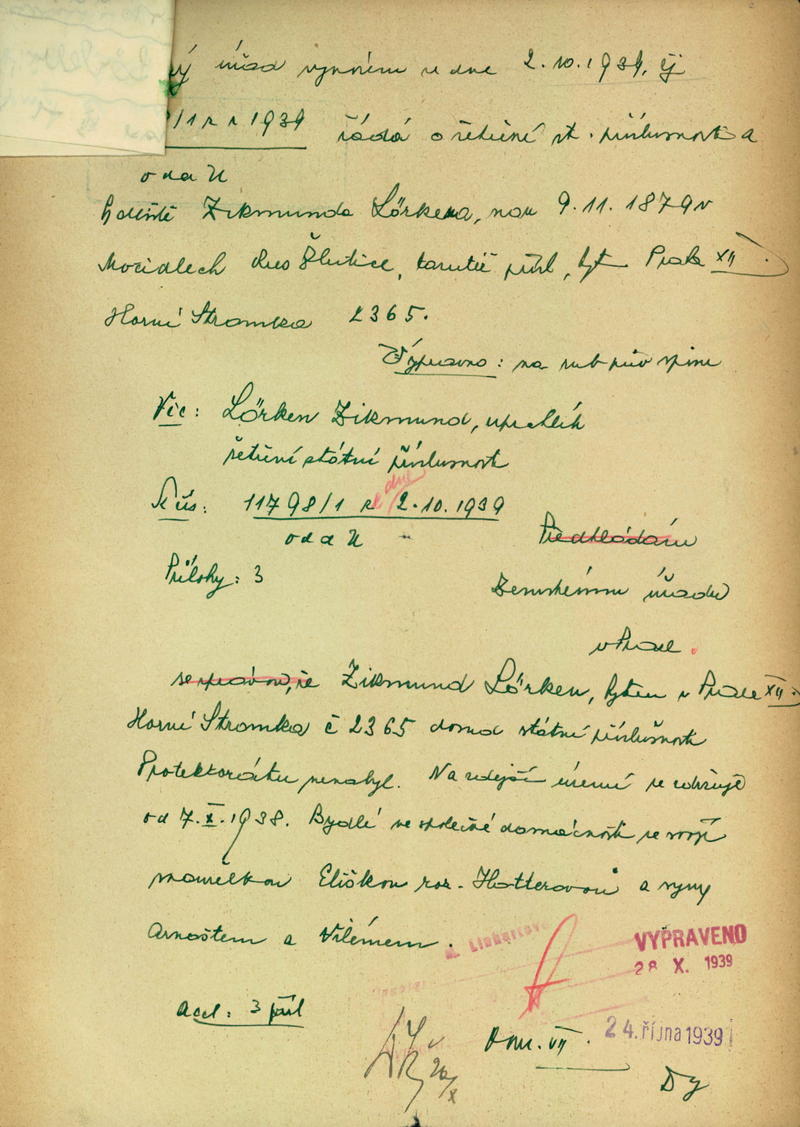 ý úřad vynosem ze dne 2.10.1939, čj
/1 r z 1939 žádá o řešení st. příslušnosti a
odd II
hledně Zikmunda Lörkena, nar 9.11.1879 v
Mocidlech okres Žlutice, tamtéž přísl, byt Praha XII
Horní Stromka 2365.
Výpravno: na rub pův spisu
Věc: Lörken Zikmund, uprchlík
řešení státní příslušnosti
K čís: 11798/1 r ze dne 2.10.1939
odd II
Přílohy: 3
Předkládám
Zemskému úřadu
v Praze.
se zprávou, že Zikmund Lörken, bytem v Praze XII.
Horní Stromka č 2365 dosud státní příslušnosti
Protektorátu nenabyl. Na zdejším území se zdržuje
od 7.X.1938. Bydlí ve společné domácnosti se svojí
manželkou Eliškou roz. Hotterovou a syny
Arnoštem a Vilémem.
VYPRAVENO
28 X. 1939
Accl: 3 příl
Dom. VII. 24. října 1939
20/X